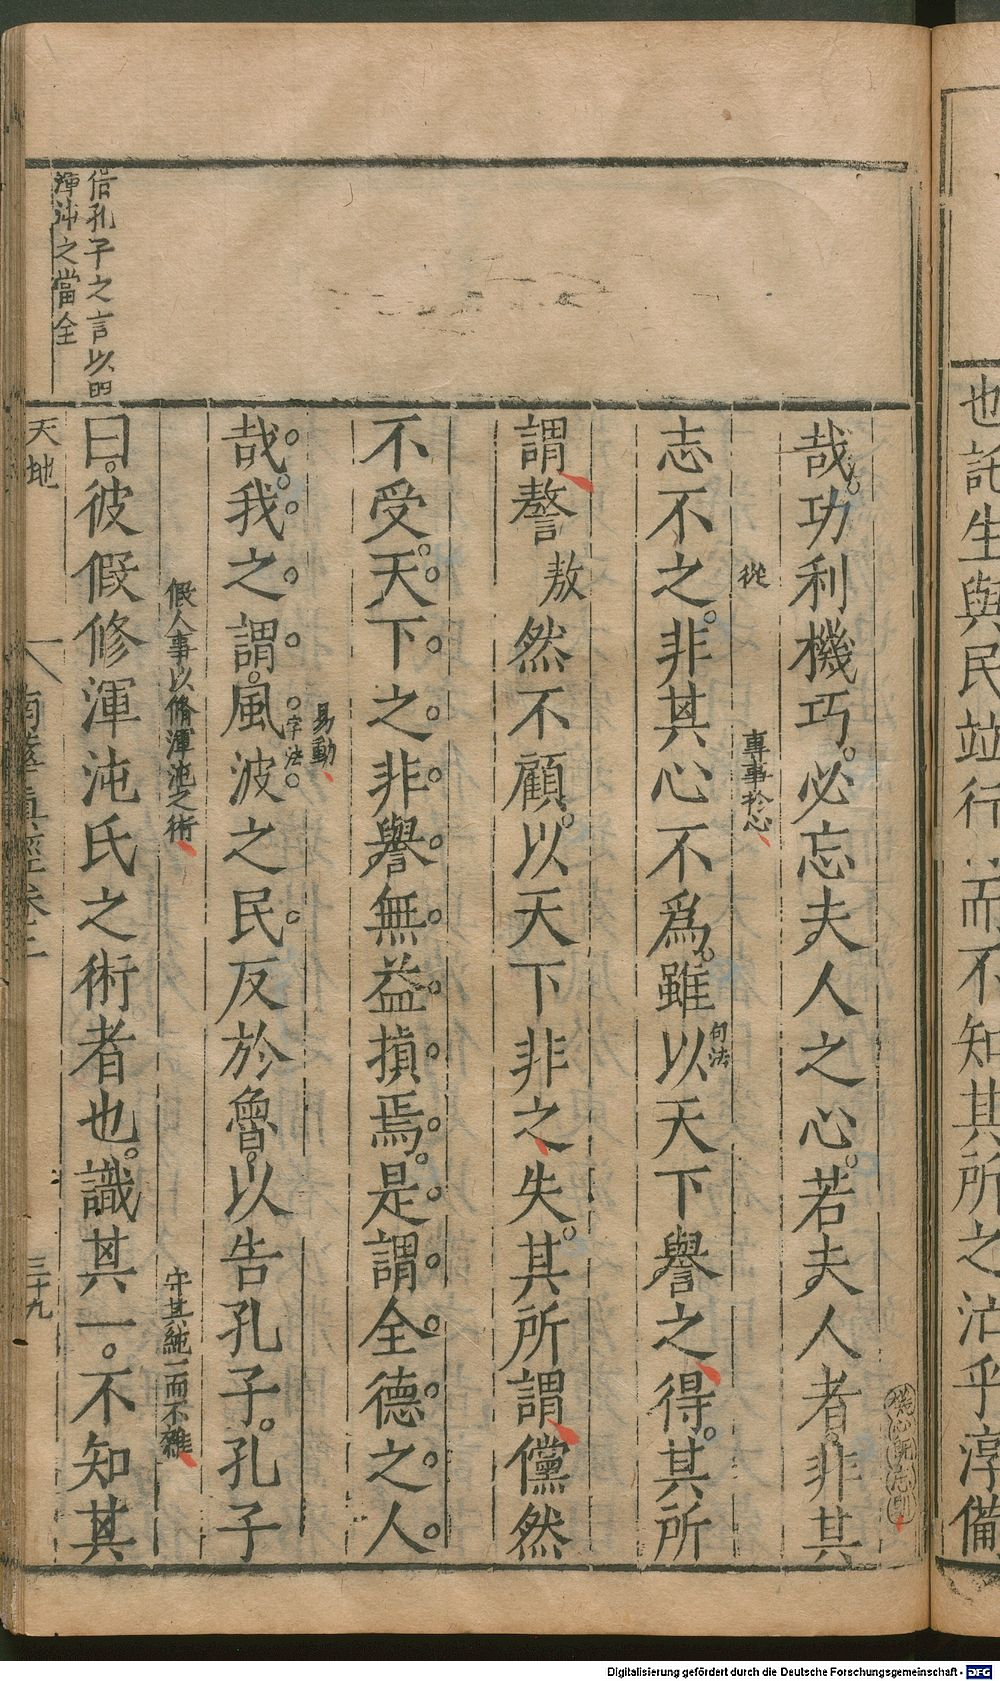 也託生與民竝行而不知其所之汒乎淳備
哉。功利機巧。必忘夫人之心。若夫人者。非其
志不之。非其心不爲。雖以天下譽之。得。其所
從
專事於心
句法
謂謷
敖
然不顧。以天下非之失。其所謂儻然
不受。天下之非譽無益損焉。是謂全德之人
哉。我之謂。風波之民反於魯。以告孔子。孔子
易動
字法
假人事以脩渾沌之術
守其純一而不雜
曰。彼假修渾沌氏之術者也。識其一。不知其
借孔子之言以明
渾沌之當全
天地
南華真經卷三
三十九
Digitalisierung gefördert durch die Deutsche Forschungsgemeinschaft - DFG